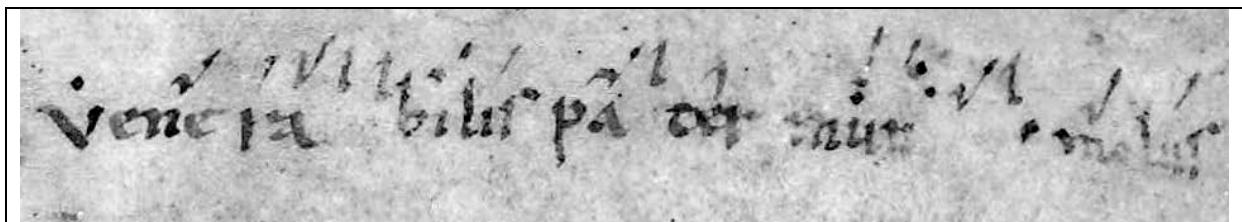 Venera bilis pater mum molus